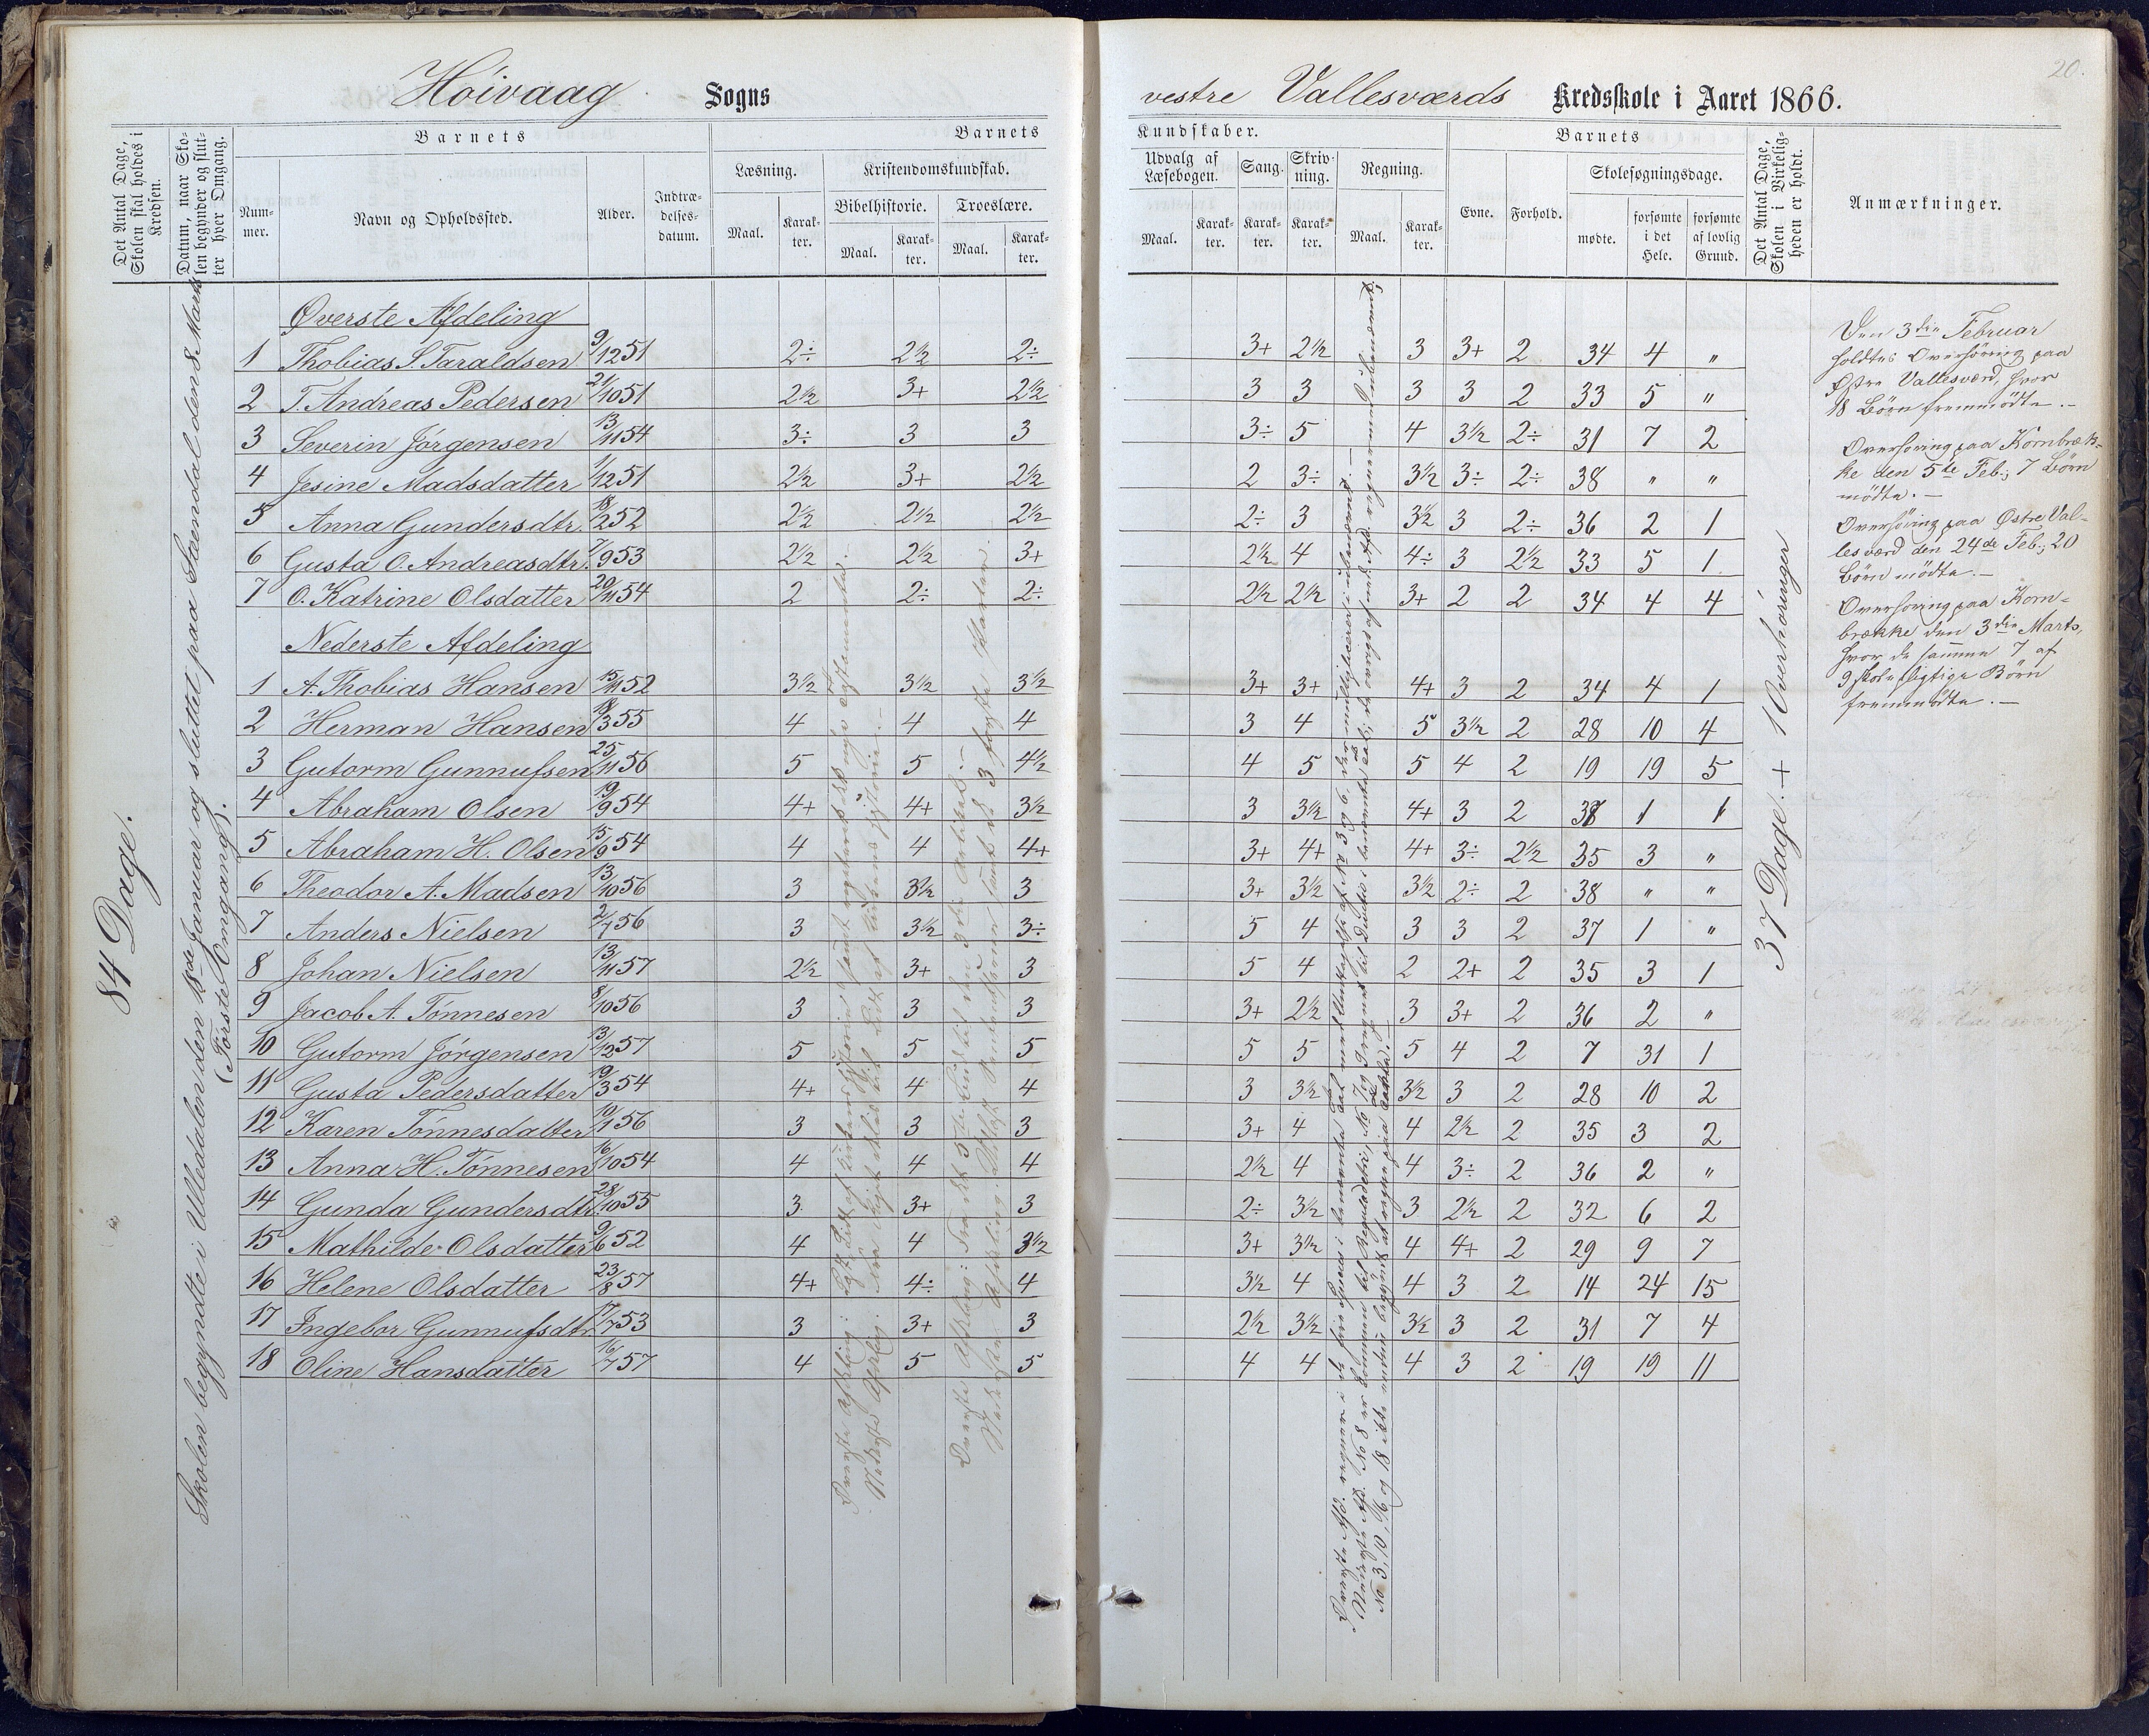 20.
Höivaag Sogns
vestre Vallesværds Kredsskole i Aaret 1866.
Det Antal Dage, Skolen skal holdes i Kredsen.
Datum, naar Skolen begynder og slutter hver Omgang.
Barnets
Nummer.
Navn og Opholdssted.
Alder.
Indtrædelsesdatum.
Barnets
Læsning.
Maal.
Karakter.
Kristendomskundskab.
Bibelhistorie.
Maal.
Karakter.
Troeslære.
Maal.
Karakter.
Kundskaber.
Udvalg af Læsebogen.
Maal.
Karakter.
Sang.
Karakter.
Skrivning.
Karakter.
Regning.
Maal.
Karakter.
Barnets
Evne.
Forhold.
Skolesøgningsdage.
mødte.
forsømte i det Hele.
forsømte af lovlig Grund.
Det Antal Dage, Skolen i Virkeligheden er holdt.
Anmærkninger.
84 Dage.
Skolen begyndte i Ulledalen den 18de Januar og sluttet paa Stendal den 8 Marts
(Förste Omgang).
Øverste Afdeling
1 Thobias S. Taraldsen 9/12 51 2÷ 2½ 2÷ 3+ 2½ 3 3+ 2 34 4 "
2 T. Andreas Pedersen 21/10 51 2½ 3+ 2½ 3 3 3 3 2 33 5 "
3 Severin Jörgensen 13/11 54 3÷ 3 3 3÷ 5 4 3½ 2÷ 31 7 2
4 Jesine Madsdatter 1/12 51 2½ 3+ 2½ 2 3÷ 3½ 3÷ 2÷ 38 " "
5 Anna Gundersdtr. 18/2 52 2½ 2½ 2½ 2÷ 3 3½ 3 2÷ 36 2 1
6 Gusta O. Andreasdtr. 7/9 53 2½ 2½ 3+ 2½ 4 4÷ 3 2½ 33 5 1
7 O. Katrine Olsdatter 20/11 54 2 2÷ 2÷ 2½ 2½ 3+ 2 2 34 4 4
Nederste Afdeling
1 A. Thobias Hansen 15/11 52 3½ 3½ 3½ 3+ 3+ 4+ 3 2 34 4 1
2 Herman Hansen 18/3 55 4 4 4 3 4 5 3½ 2 28 10 4
3 Gutorm Gunnufsen 25/11 56 5 5 4½ 4 5 5 4 2 19 19 5
4 Abraham Olsen 19/9 54 4+ 4+ 3½ 3 3½ 4+ 3 2 37 1 1
5 Abraham H. Olsen 15/9 54 4 4 4+ 3+ 4+ 4+ 3÷ 2½ 35 3 "
6 Theodor A. Madsen 13/10 56 3 3½ 3 3+ 3½ 3½ 2÷ 2 38 " "
7 Anders Nielsen 2/7 56 3 3½ 3÷ 5 4 3 3 2 37 1 "
8 Johan Nielsen 13/11 57 2½ 3+ 3 5 4 2 2+ 2 35 3 1
9 Jacob A. Tönnesen 8/10 56 3 3 3 3+ 2½ 3 3+ 2 36 2 "
10 Gutorm Jörgensen 13/12 57 5 5 5 5 5 5 4 2 7 31 1
11 Gusta Pedersdatter 19/3 54 4+ 4 4 3 3½ 3½ 3 2 28 10 2
12 Karen Tönnesdatter 10/1 56 3 3 3 3+ 4 4 2½ 2 35 3 2
13 Anna H. Tönnesen 16/10 54 4 4 4 2½ 4 4 3÷ 2 36 2 "
14 Gunda Gundersdtr. 28/10 55 3 3+ 3 2÷ 3½ 3 2½ 2 32 6 2
15 Mathilde Olsdatter 9/6 52 4 4 3½ 3+ 3½ 4 4+ 2 29 9 7
16 Helene Olsdatter 23/8 57 4+ 4÷ 4 3½ 4 4 3 2 14 24 15
17 Ingebor Gunnufsdtr. 17/7 53 3 3+ 3 2½ 3½ 3½ 3 2 31 7 4
18 Oline Hansdatter 16/7 57 4 5 5 4 4 4 3 2 19 19 11
37 Dage. + 1 Overhöringer
Den 3die Februar
holdtes Overhöring paa
Østre Vallesværd, hvor
18 Börn fremmödte. –
Overhöring paa Kornbræk-
ke den 5te Feb.; 7 Börn
mödte. –
Overhöring paa Østre Val-
lesværd den 24de Feb.; 20
Börn mödte. –
Overhöring paa Korn-
brække den 3die Marts,
hvor de samme 7 af
9 skolepligtige Börn
fremmödte. –